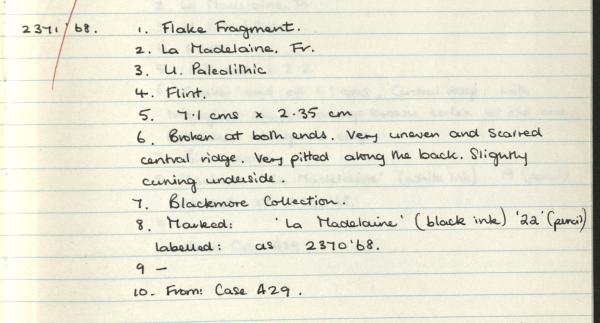 2371'68. 1. Flake Fragment.
2. La Madelaine, Fr.
3. U. Paleolithic
4. Flint.
5. 7.1 cms x 2.35 cm
6. Broken at both ends. Very uneven and scarred
central ridge. Very pitted along the back. Slightly
curving underside.
7. Blackmore Collection.
8. Marked: 'La Madelaine' (black ink) '22' (pencil)
labelled: as 2370'68.
9 —
10. From: Case A29.